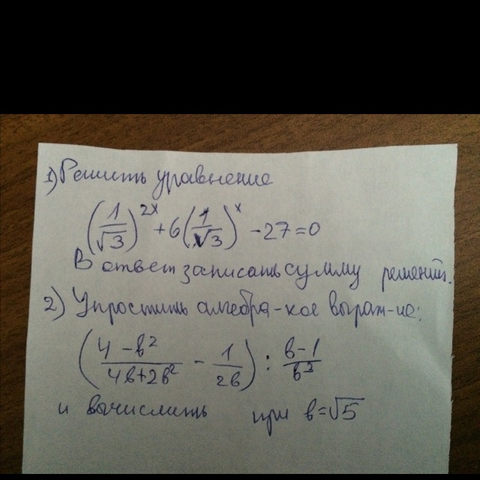 1) Решить уравнение
(1/√3)^2x + 6(1/√3)^x - 27 = 0
В ответ записать сумму решений.
2) Упростить алгебра-кое выраж-ие:
((4-в²)/(4в+2в²) - 1/(2в)) : (в-1)/в²
и вычислить при в=√5